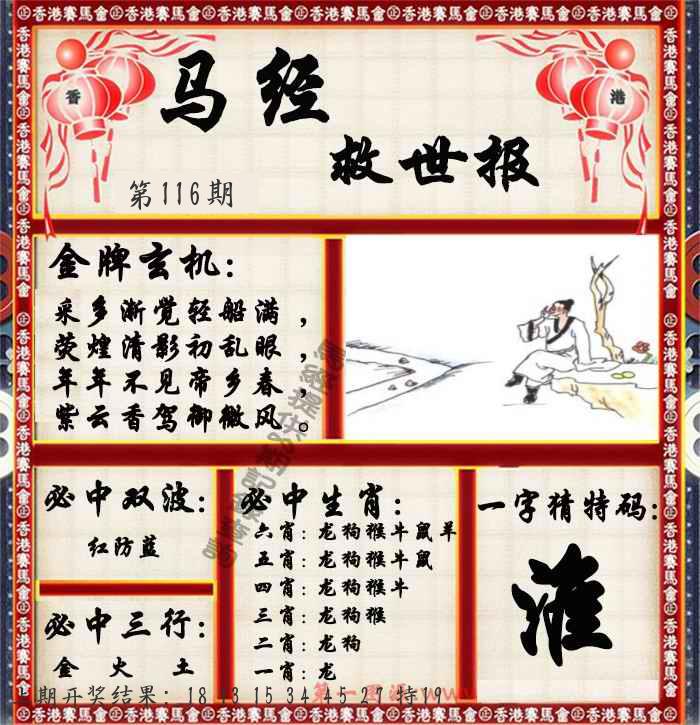 香港賽馬會
香 港
马经
救世报
第116期
金牌玄机:
采乡渐觉轻船满,
荧煌清影初乱眼,
年年不见帝乡春,
紫云香驾御微风。
必中双波:
红防蓝
必中三行:
金 火 土
必中生肖:
六肖:龙狗猴牛鼠羊
五肖:龙狗猴牛鼠
四肖:龙狗猴牛
三肖:龙狗猴
二肖:龙狗
一肖:龙
一字猜特码:
期开奖结果:18 43 15 34 45 27 特19
第一图源